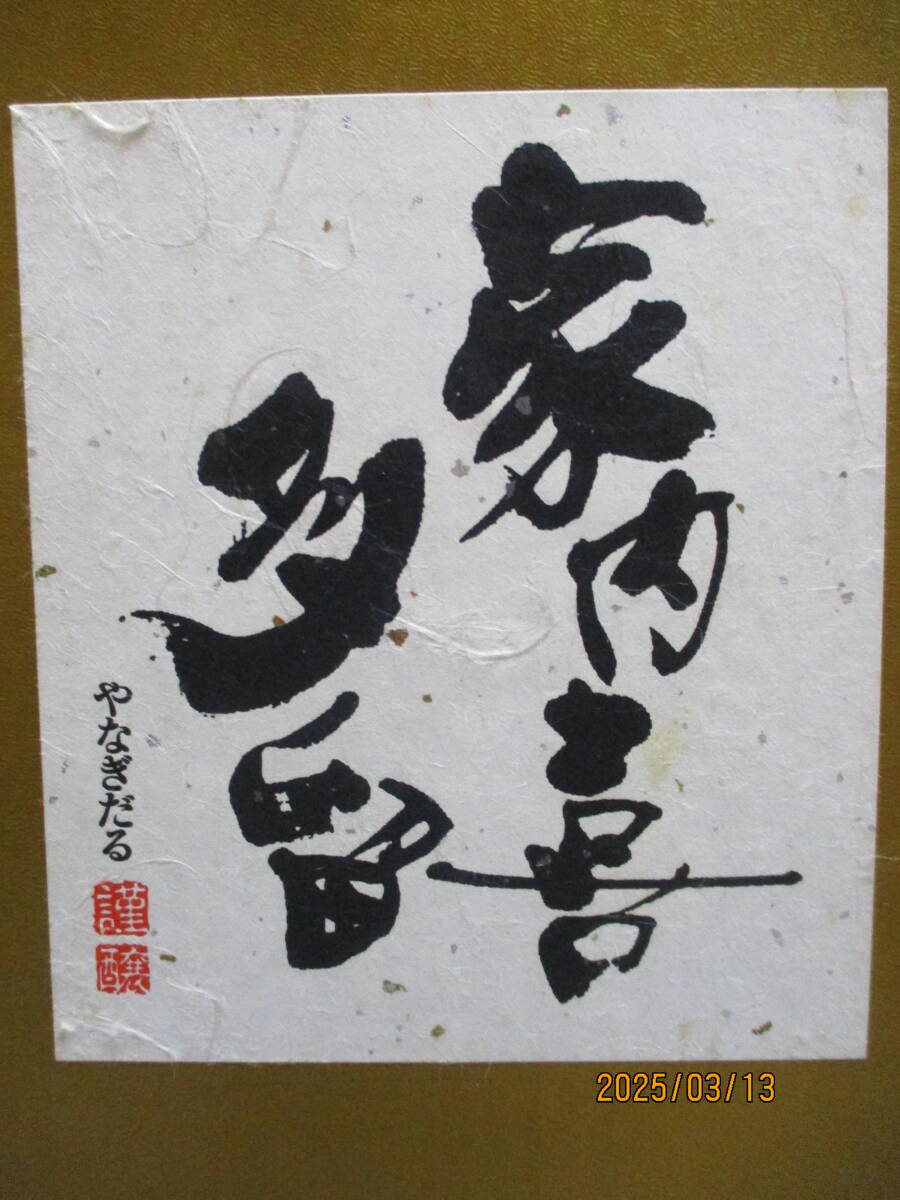 家内喜
多留
やなぎだる
謹
醸
2025/03/13